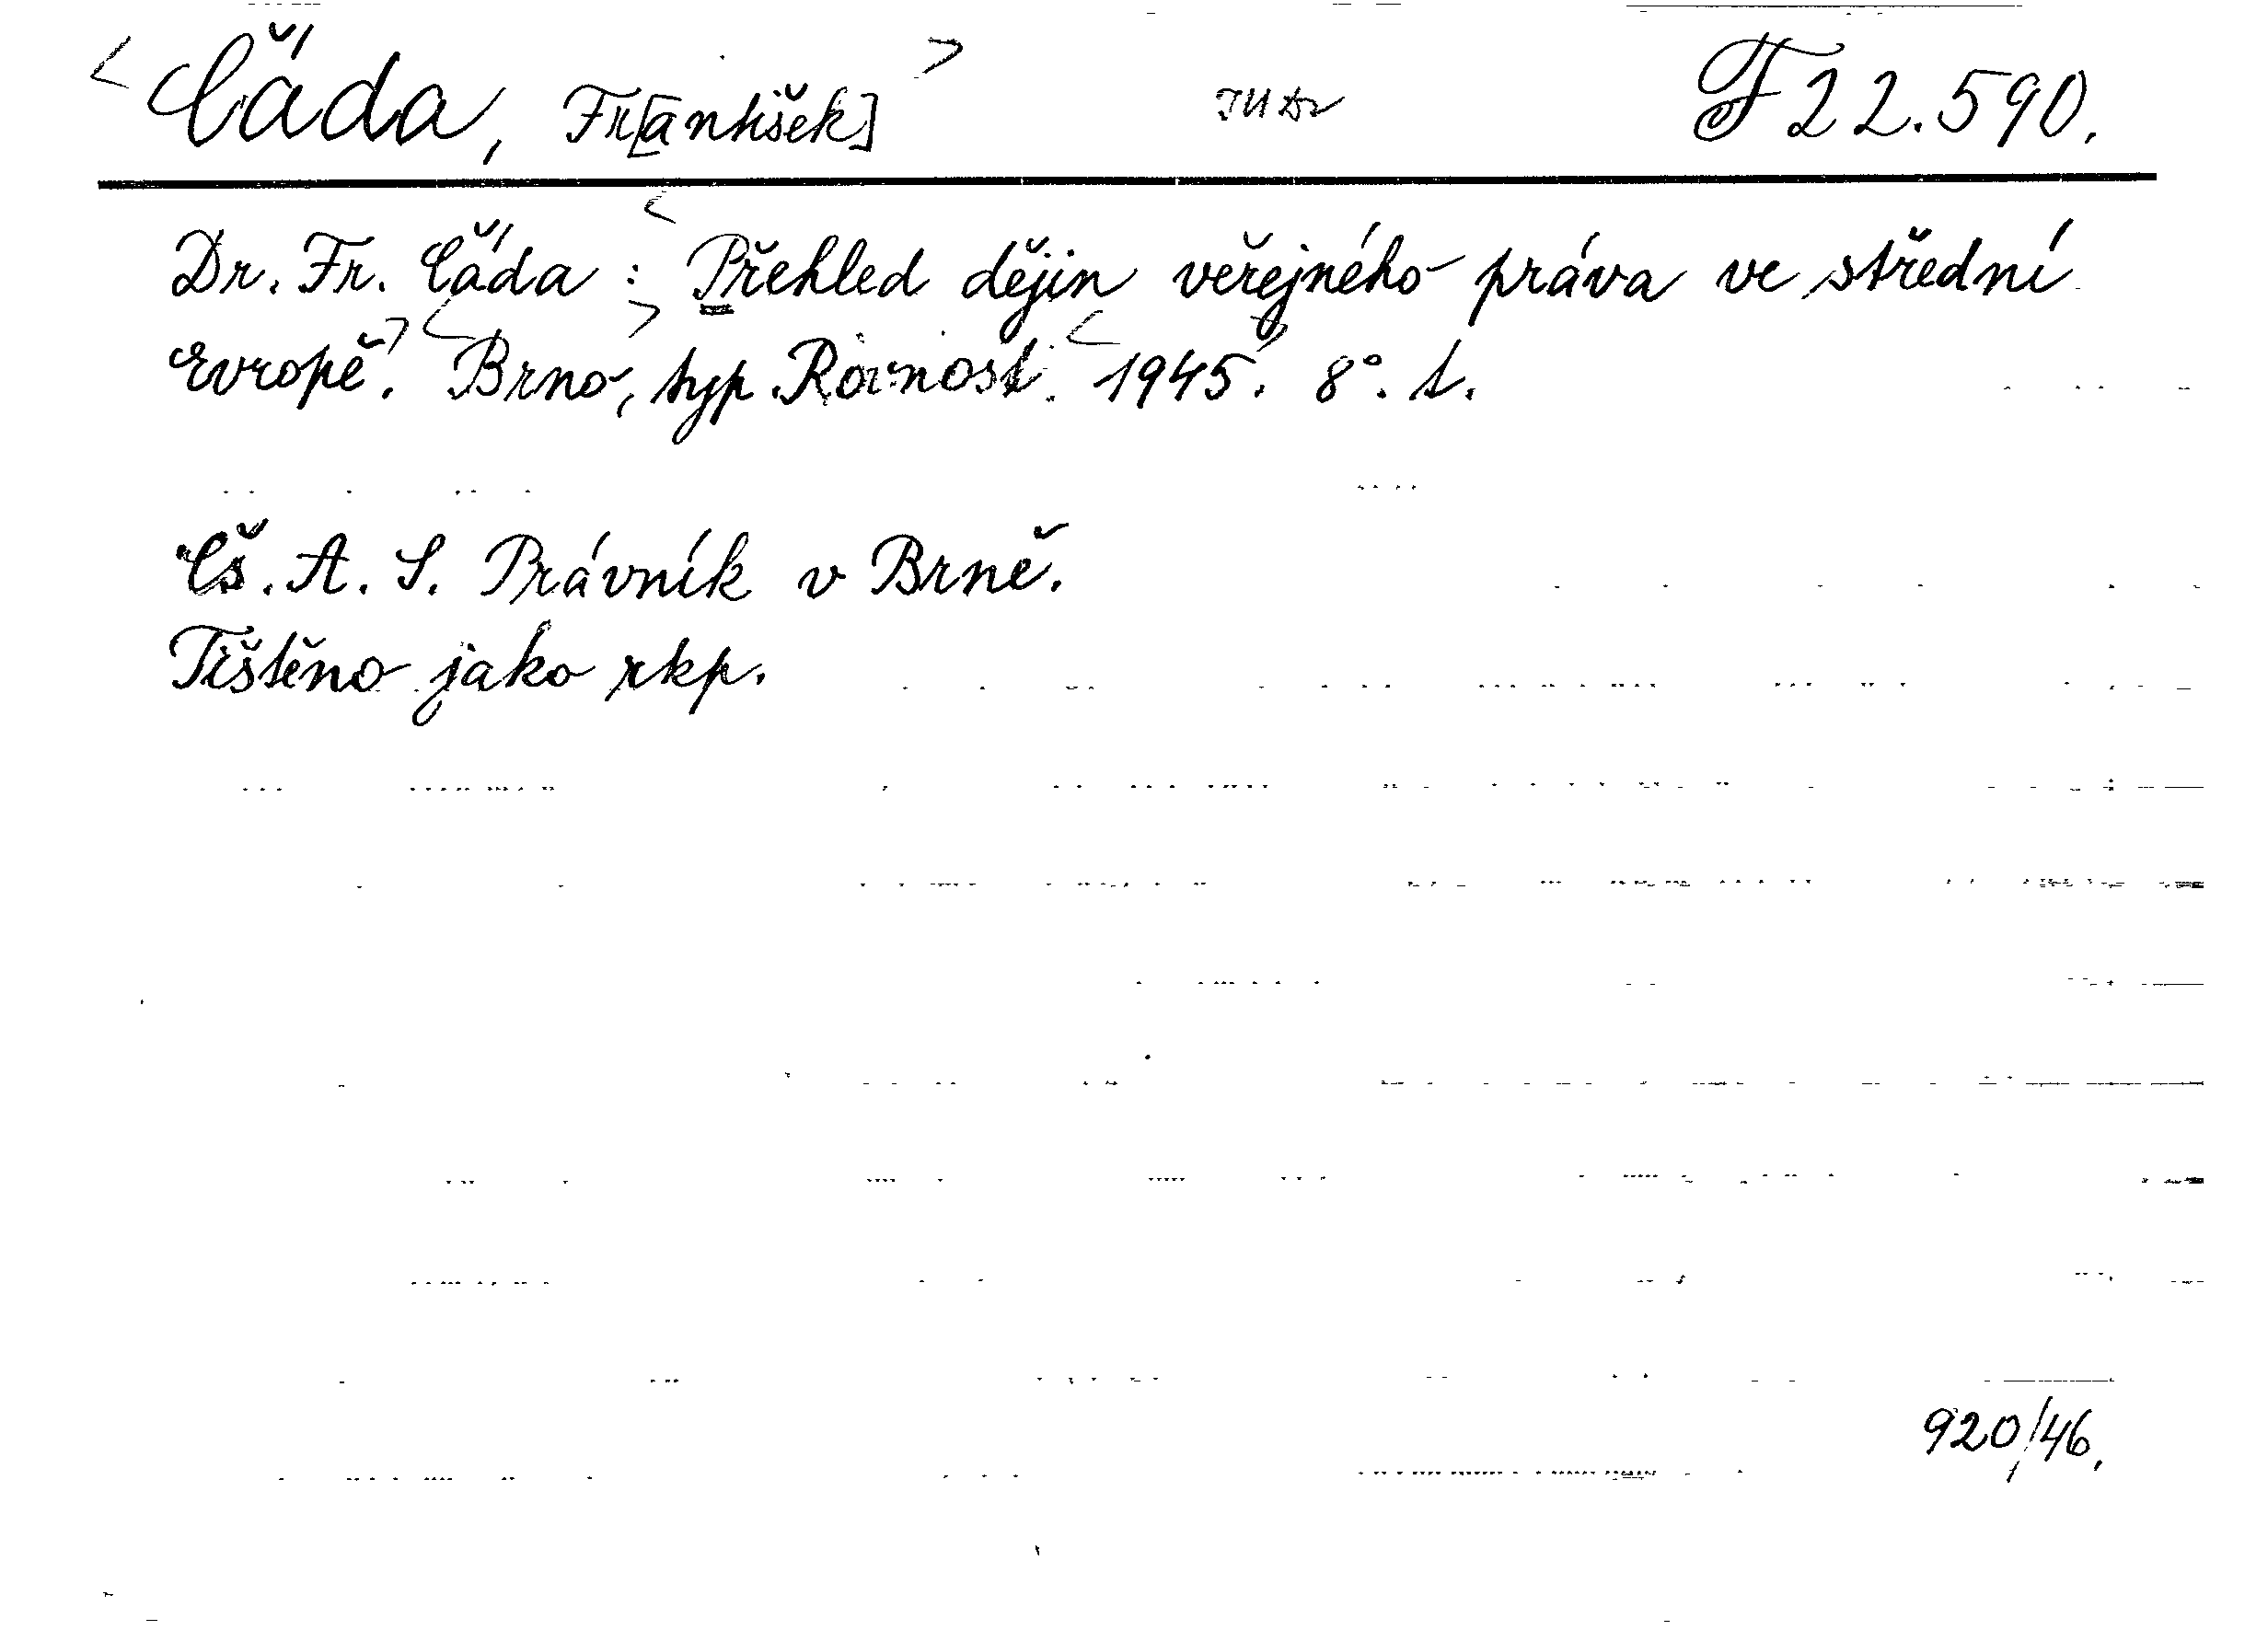 <Čáda, Fr[antišek]> JUDr F 22.590.
Dr. Fr. Čáda : <Přehled dějin veřejného práva ve střední
Evropě.> <Brno,> typ. Rovnost. <1945.> 8°. t.
Čs. A. S. Právník v Brně.
Tištěno jako rkp.
920/46.